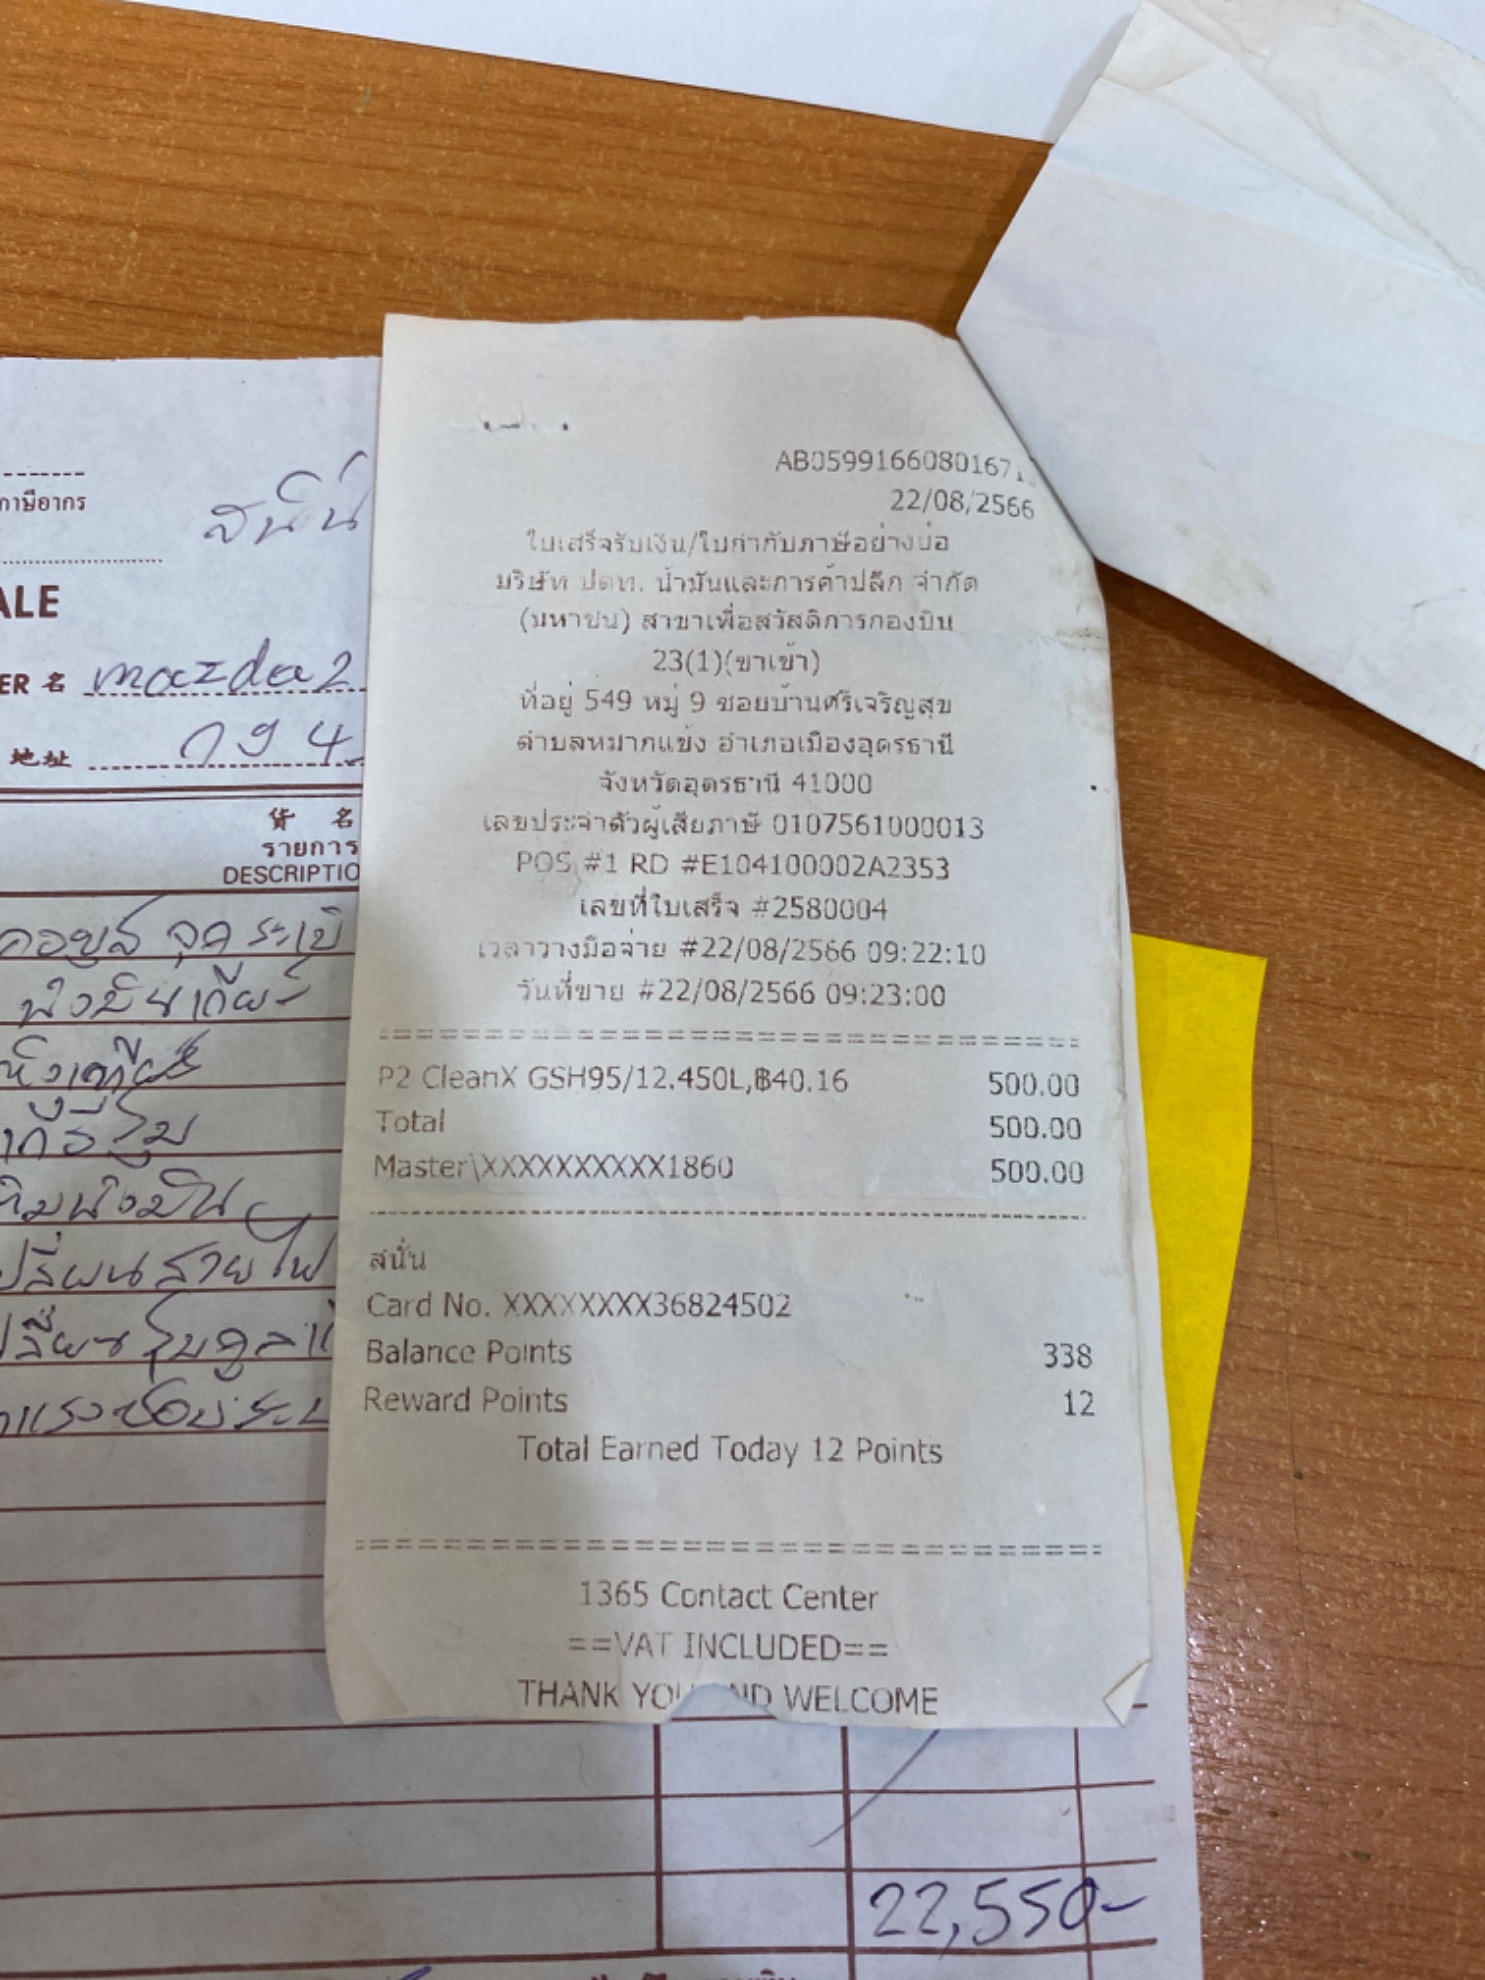 AB05991660801671
22/08/2566
ใบเสร็จรับเงิน/ใบกำกับภาษีอย่างย่อ
บริษัท ปตท. น้ำมันและการค้าปลีก จำกัด
(มหาชน) สาขาเพื่อสวัสดิการกองบิน
23(1)(ขาเข้า)
ที่อยู่ 549 หมู่ 9 ซอยบ้านศรีเจริญสุข
ตำบลหมากแข้ง อำเภอเมืองอุดรธานี
จังหวัดอุดรธานี 41000
เลขประจำตัวผู้เสียภาษี 0107561000013
POS #1 RD #E104100002A2353
เลขที่ใบเสร็จ #2580004
เวลาวางมือจ่าย #22/08/2566 09:22:10
วันที่ขาย #22/08/2566 09:23:00
P2 CleanX GSH95/12.450L,฿40.16 500.00
Total 500.00
Master\XXXXXXXXXX1860 500.00
สนั่น
Card No. XXXXXXXX36824502
Balance Points 338
Reward Points 12
Total Earned Today 12 Points
1365 Contact Center
==VAT INCLUDED==
THANK YOU AND WELCOME
ภาษีอากร
สนั่น
ALE
ER 名 mazda2
地址 กจ 4
货 名
รายการ
DESCRIPTIO
คอยล์ จุดระเบิ
น้ำมันเกียร์
เปลี่ยนสายไฟ
22,550-